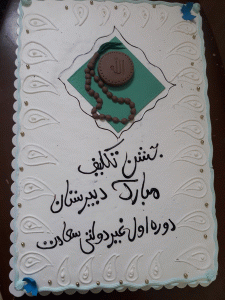 الله
جشن تکلیف
مبارک دبیرستان
دوره اول غیردولتی سعادت